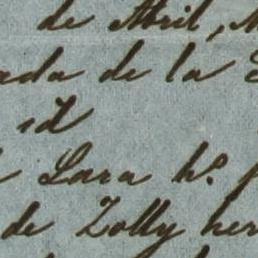 de Abril, M
ada de la
id
Lara h.º p
de Zolly her